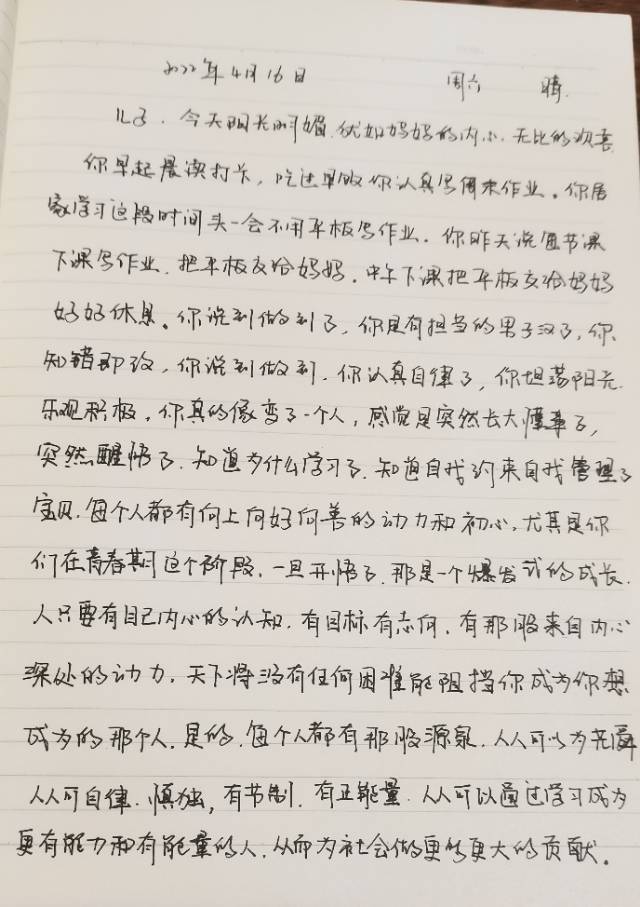 2022年4月16日 周六 晴.
儿子.今天阳光明媚.犹如妈妈的内心.无比的欢喜
你早起晨读打卡,吃过早饭你认真写周末作业。你居
家学习这段时间头一会不用平板写作业.你昨天说每节课
下课写作业.把平板交给妈妈.中午下课把平板交给妈妈
好好休息。你说到做到了,你是有担当的男子汉了,你
知错即改,你说到做到.你认真自律了,你坦荡阳光.
乐观积极,你真的像变了一个人,感觉是突然长大懂事了,
突然醒悟了.知道为什么学习了.知道自我约束自我管理了
宝贝.每个人都有向上向好向善的动力和初心,尤其是你
们在青春期这个阶段.一旦开悟了.那是一个爆发式的成长.
人只要有自己内心的认知.有目标有志向.有那股来自内心
深处的动力.天下将没有任何困难能阻挡你成为你想
成为的那个人.是的.每个人都有那股源泉.人人可以为尧舜
人人可自律.慎独,有节制.有正能量.人人可以通过学习成为
更有能力和有能量的人.从而为社会做更多更大的贡献。